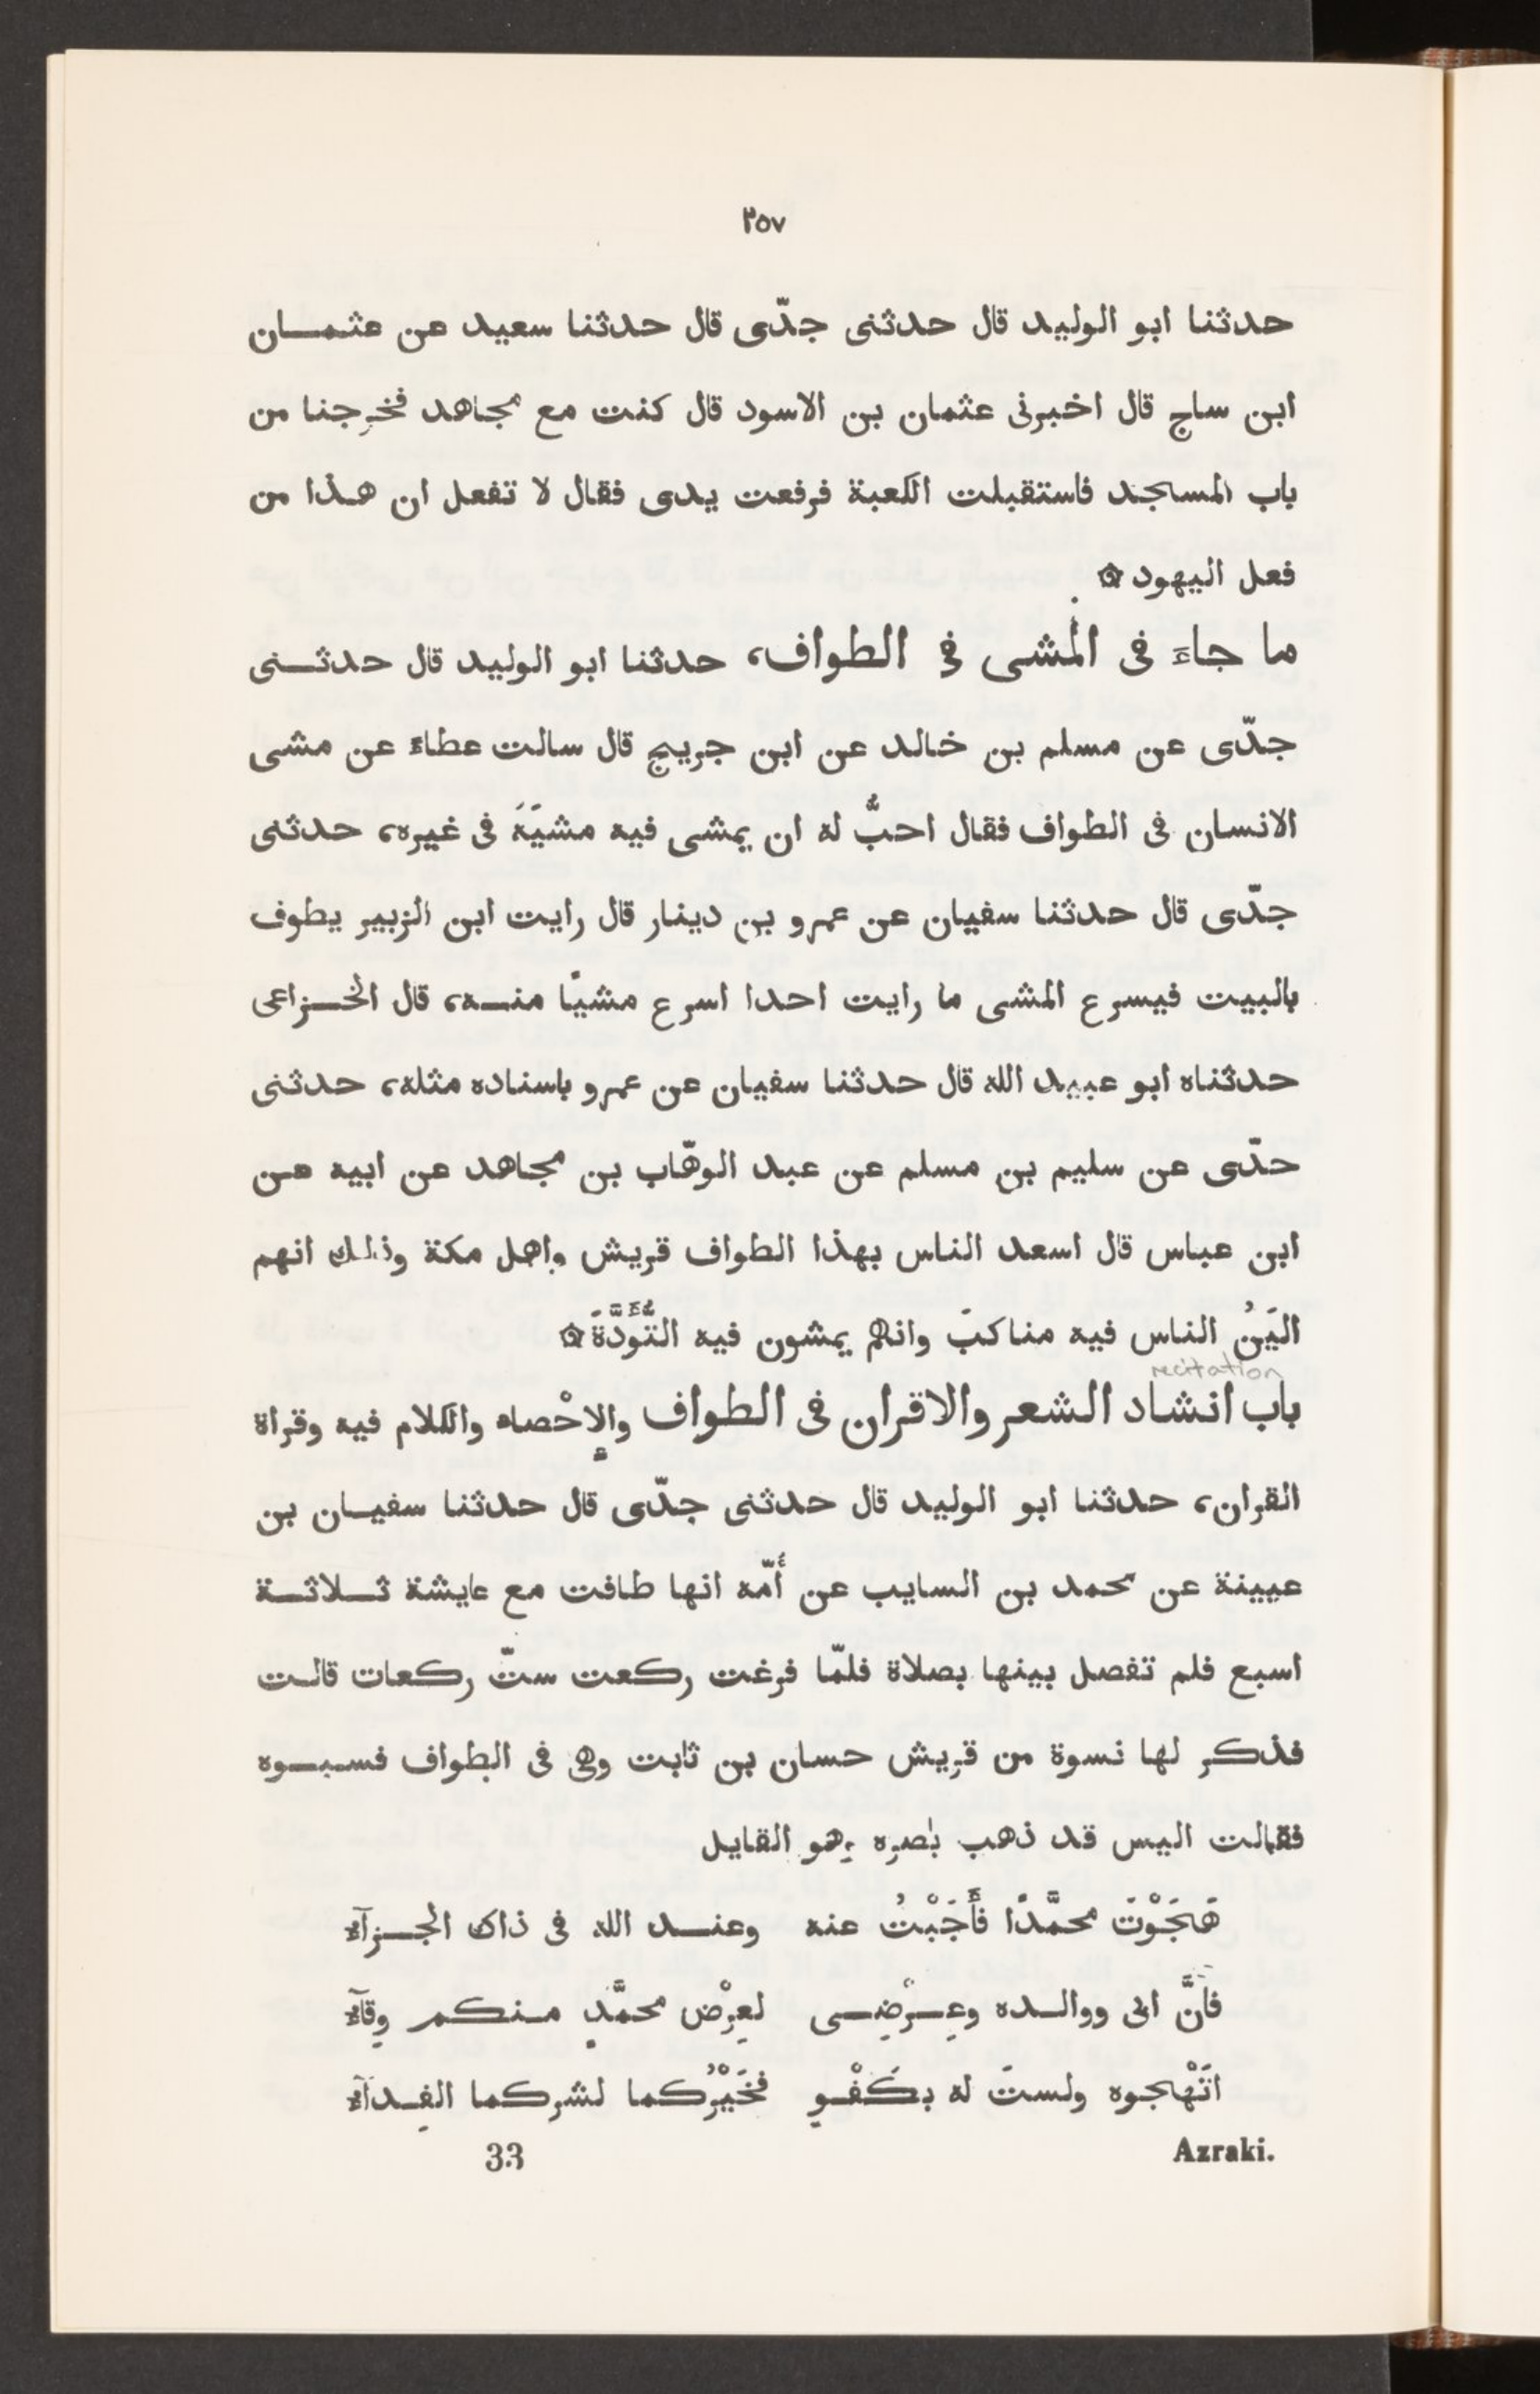 ٢٥٧
حدثنا ابو الوليد قال حدثنى جدّى قال حدثنا سعيد عن عثمان
ابن ساج قال اخبرنى عثمان بن الاسود قال كنت مع مجاهد فخرجنا من
باب المسجد فاستقبلت الكعبة فرفعت يدى فقال لا تفعل ان هذا من
فعل اليهود ۞
ما جاءَ فى المَشى فى الطواف، حدثنا ابو الوليد قال حدثنى
جدّى عن مسلم بن خالد عن ابن جريج قال سالت عطاءً عن مشى
الانسان فى الطواف فقال احبُّ له ان يمشى فيه مشيَهَ فى غيره، حدثنى
جدّى قال حدثنا سفيان عن عمرو بن دينار قال رايت ابن الزبير يطوف
بالبيت فيسرع المشى ما رايت احدا اسرع مشيًا منه، قال الخزاعى
حدثناه ابو عبيد الله قال حدثنا سفيان عن عمرو باسناده مثله، حدثنى
حدّى عن سليم بن مسلم عن عبد الوهّاب بن مجاهد عن ابيه عن
ابن عباس قال اسعد الناس بهذا الطواف قريش واهل مكة وذلك انهم
اليَنُ الناس فيه مناكبَ وانهم يمشون فيه التُّؤَدَّةَ ۞
recitation
باب انشاد الشعر والاقران فى الطواف والإحْصاء والكلام فيه وقراة
القران، حدثنا ابو الوليد قال حدثنى جدّى قال حدثنا سفيان بن
عيينة عن محمد بن السايب عن أُمّه انها طافت مع عايشة ثلاثة
اسبع فلم تفصل بينها بصلاة فلمّا فرغت ركعت ستّ ركعات قالت
فذكر لها نسوة من قريش حسان بن ثابت وهى فى الطواف فسبوه
فقالت اليس قد ذهب بصره وهو القايل
هَجَوْتَ محمَّدًا فأَجَبْتُ عنه وعند الله فى ذاك الجزآءُ
فانَّ ابى ووالده وعِرْضِى لعِرْض محمَّدٍ منكم وِقآءُ
اتَهْجوه ولستَ له بكَفْوٍ فخَيْرُكما لشركما الفِدآءُ
33
Azraki.